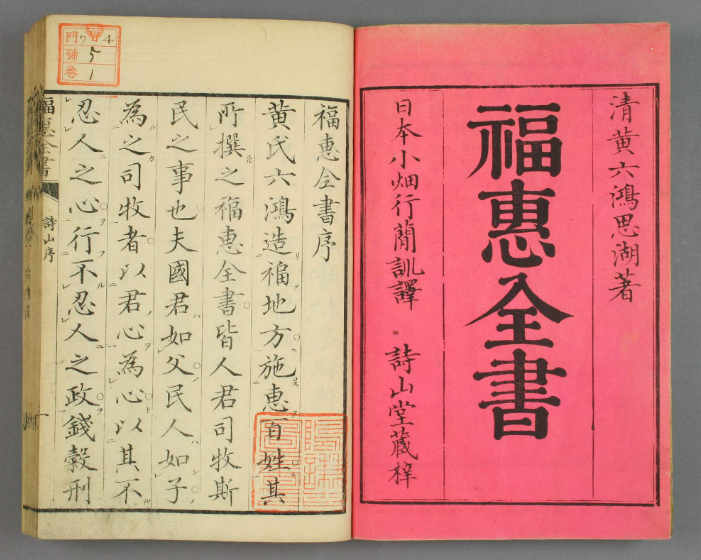 清黄六鴻思湖著
福惠全書
日本小畑行蕳訓譯 詩山堂蔵梓
福惠全書序
黄氏六鴻造福地方施惠百姓其
所撰之福惠全書皆人君司牧斯
民之事也夫國君如父民人如子
為之司牧者以君心為心以其不
忍人之心行不忍人之政錢穀刑
福惠全書
詩山序
門 ワ 4
號 5
卷 1